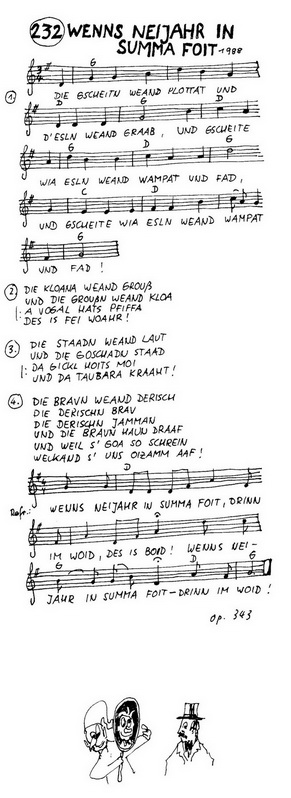 232 WENNS NEIJAHR IN
SUMMA FOIT 1988
G
1. DIE GSCHEITN WEAND PLOTTAT UND
D G
D'ESLN WEAND GRAAB, UND GSCHEITE
G D G
WIA ESLN WEAND WAMPAT UND FAD,
C D
UND GSCHEITE WIA ESLN WEAND WAMPAT
G
UND FAD!
2. DIE KLOANA WEAND GROUß
UND DIE GROUßN WEAND KLOA
|: A VOGAL HATS PFIFFA
DES IS FEI WOAHR!
3. DIE STAADN WEAND LAUT
UND DIE GOSCHADN STAAD
|: DA GICKL HOITS MOI
UND DA TAUBARA KRAAHT!
4. DIE BRAVN WEAND DERISCH
DIE DERISCHN BRAV
DIE DERISCHN JAMMAN
UND DIE BRAVN HAUN DRAAF
UND WEIL S' GOA SO SCHREIN
WECKAND S' UNS OIZAMM AAF!
D
Refr.: WENNS NEIJAHR IN SUMMA FOIT, DRINN
G
IM WOID, DES IS BOID! WENNS NEI-
G D G
JAHR IN SUMMA FOIT-DRINN IM WOID!
Op. 343